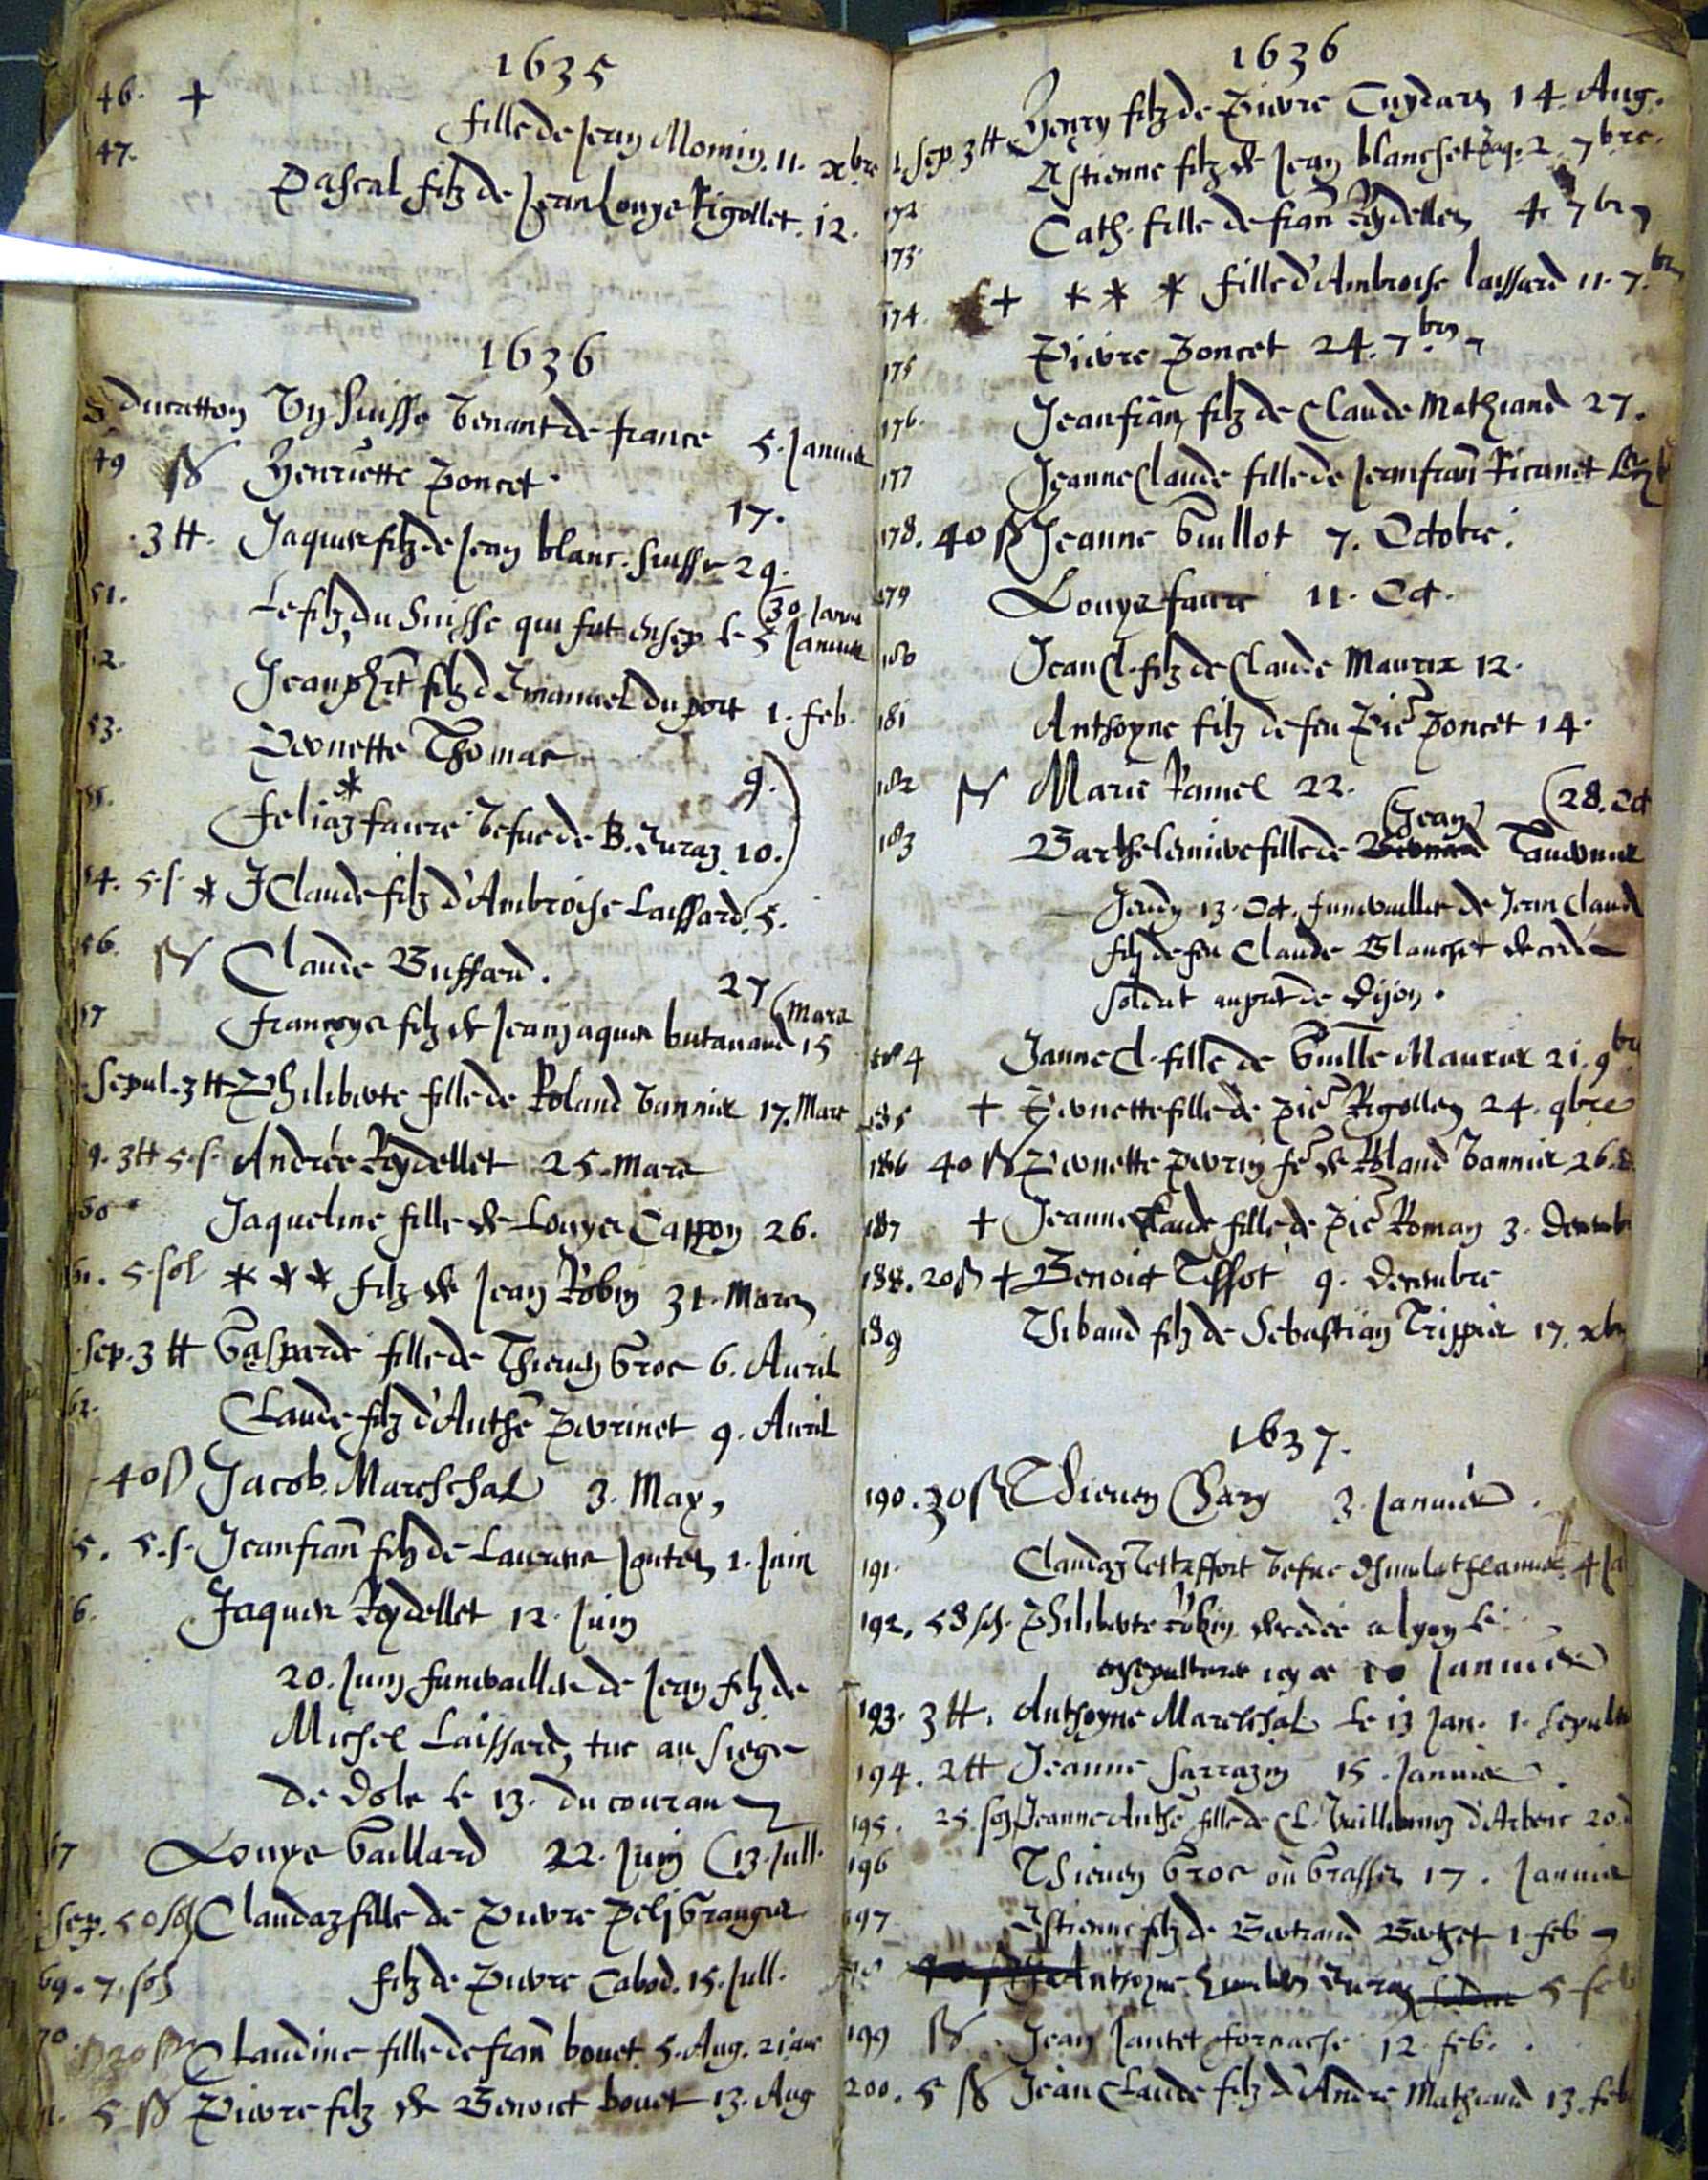 1635
46. +
fille de Jean Monin. 11. xbre
47.
Pascal filz de Jean Louys Rigollet. 12.
1636
ducatton Un Suisse venant de france 5. Janvier
49 Henriette Poncet. 17.
3 tt. Jaques filz de Jean blanc. Suisse 29.
51. Le filz du Suisse qui fut ensep. le 5 Janvier (30 Janvi
52. Jean phēt filz de Emanuel du port 1. feb.
53. Pernette Thomas 9.
* feliaz faure vefue de B. Juraz 10.)
54. 5. s. * J Claude filz d'Ambroise Laissard. 5.
56. Claude Buffard. 27
57 Françoys filz de Jean Jaques butavand 15 (Mars
Sepul. 3 tt Philiberte fille de Roland Vannier 17. Mars
9. 3 tt 5. s. Andrée Reydellet 25. Mars
60 Jaqueline fille de Louys Cappon 26.
61. 5. sol * * * filz de Jean Robin 31. Mars
sep. 3 tt Gasparde fille de Thieven Gros 6. Avril
Claude filz d'Anthē Perrinet 9. Avril
40 ß Jacob Mareschal 3. May,
5. 5. s. Jean fran̄ filz de Laurens Jantet 1. Juin
6. Jaques Reydellet 12. Juin
20. Juin funerailles de Jean filz de
Michel Laissard, tué au siege
de Dole le 13. du courant
67 Louyse Gaillard 22. Juin (13. Jull.
Sep. 50 sol Claudaz fille de Pierre Granger
69. 7. sols filz de Pierre Cabod. 15. Jull.
70. 20 ß Claudine fille de fran̄ bouet. 5. Aug.
71. 5 ß Pierre filz de Benoict bouet 13. Aug
1636
Henry filz de Pierre 14. Aug.
1. sep. 3 tt Estienne filz de Jean blanchet 2. 7bre.
172 Cath. fille de fran̄ Reydellet 4. 7bre
173. + * * * fille d'Ambroise laissard 11. 7.bre
174. Pierre Poncet 24. 7bre
175
176. Jean fran̄ filz de Claude Mathiand 27.
177 Jeanne Claude fille de Jean fran̄ Ricanet
178. 40 ß Jeanne Guillot 7. Octobre.
179 Louyse faure 11. Oct.
180 Jean Cl. filz de Claude Maurix 12.
181 Anthoyne filz de feu Pie Poncet 14.
182 Marie Ramel 22. (28. Oct
183 Barthelemive fille de Bernard (Jean) Tavernier
Jeudy 13. Oct. funerailles de Jean Claude
filz de feu Claude Blanchet decedé
soldat aupres de Dijon.
184 Janne Cl. fille de Guille Maurix 21. 9bre
185 + Pernette fille de Pie Rigollet 24. 9bre
186 40 ß Pernette Perrin fe de Roland Vannier 26.
187 + Jeanne Claude fille de Pie Roman 3. Decemb
188. 20 ß + Benoict Tissot 9. Decembre
189 Thibaud filz de Sebastian Trippier 17. xbre
1637.
190. 30 ß Thieven Gary 3. Janvier.
191. Claudaz vefue 4 Ja
192. 58 sols. Philiberte robin decedée a lyon le
ensepulturée icy ce 10 Janvier
193. 3 tt. Anthoyne Mareschal le 13 Jan. 1. Sepult
194. 2 tt Jeanne Sarrazin 15. Janvier.
195. 25. sols Jeanne Anthē fille de Cl. Vuillermoz d'Arbent 20.
196 Thieven Gros ou Grasset 17. Janvier
197 Estienne filz de Bertrand Berthet 1. feb
Anthoyne Juraz 5 feb
199 Jean Jantet fornache 12. feb.
200. 5 ß Jean Claude filz d'André Mathiand 13. feb